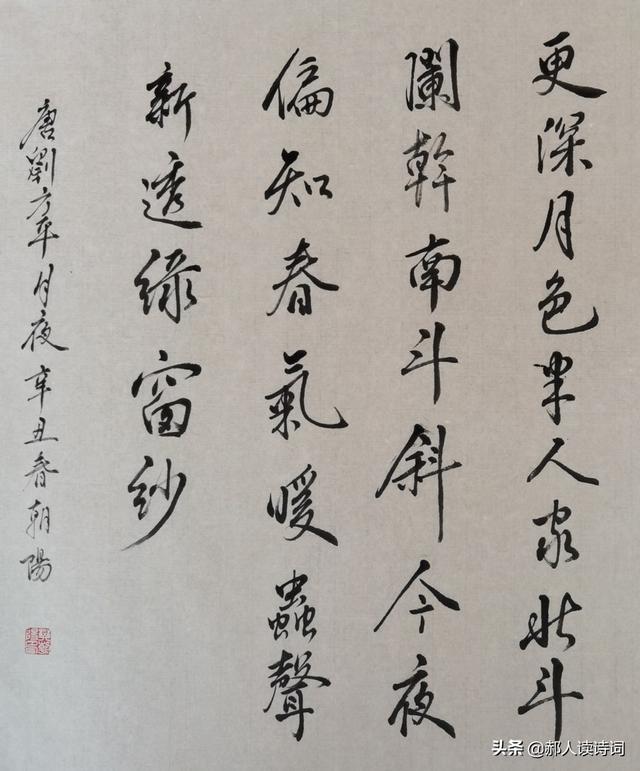 更深月色半人家北斗
闌幹南斗斜今夜
偏知春氣暖蟲聲
新透綠窗紗
唐劉方平月夜辛丑春朝陽
头条 @郝人读诗词